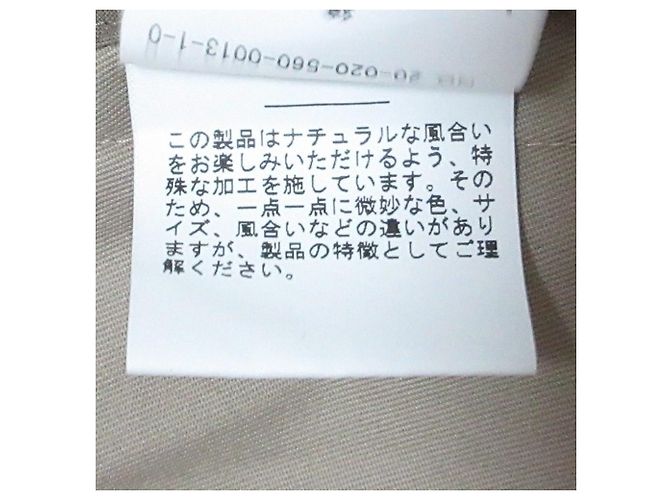 20-020-560-0013-1-0
この製品はナチュラルな風合い
をお楽しみいただけるよう、特
殊な加工を施しています。その
ため、一点一点に微妙な色、サ
イズ、風合いなどの違いがあり
ますが、製品の特徴としてご理
解ください。